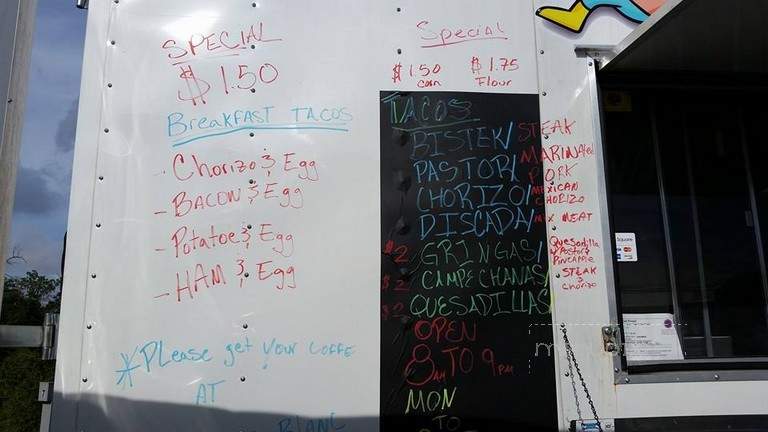 SPECIAL
$1.50
BreakFAST TACOS
- Chorizo & Egg
- BACON & Egg
- Potatoe & Egg
- HAM & Egg
* PLease get your COFFE
AT
BLANC
Special
$1.50 $1.75
Corn Flour
TACOS
BISTEK/ STEAK
PASTOR/ MARINATED PORK
CHORIZO/ MEXICAN CHORIZO
DISCADA/ MIX MEAT
$2 GRINGAS/ Quesadilla w/Pastor & PINEAPPLE
$2 CAMPECHANAS/ STEAK & Chorizo
$2 QUESADILLAS
OPEN
8AM TO 9PM
MON
TO
Square